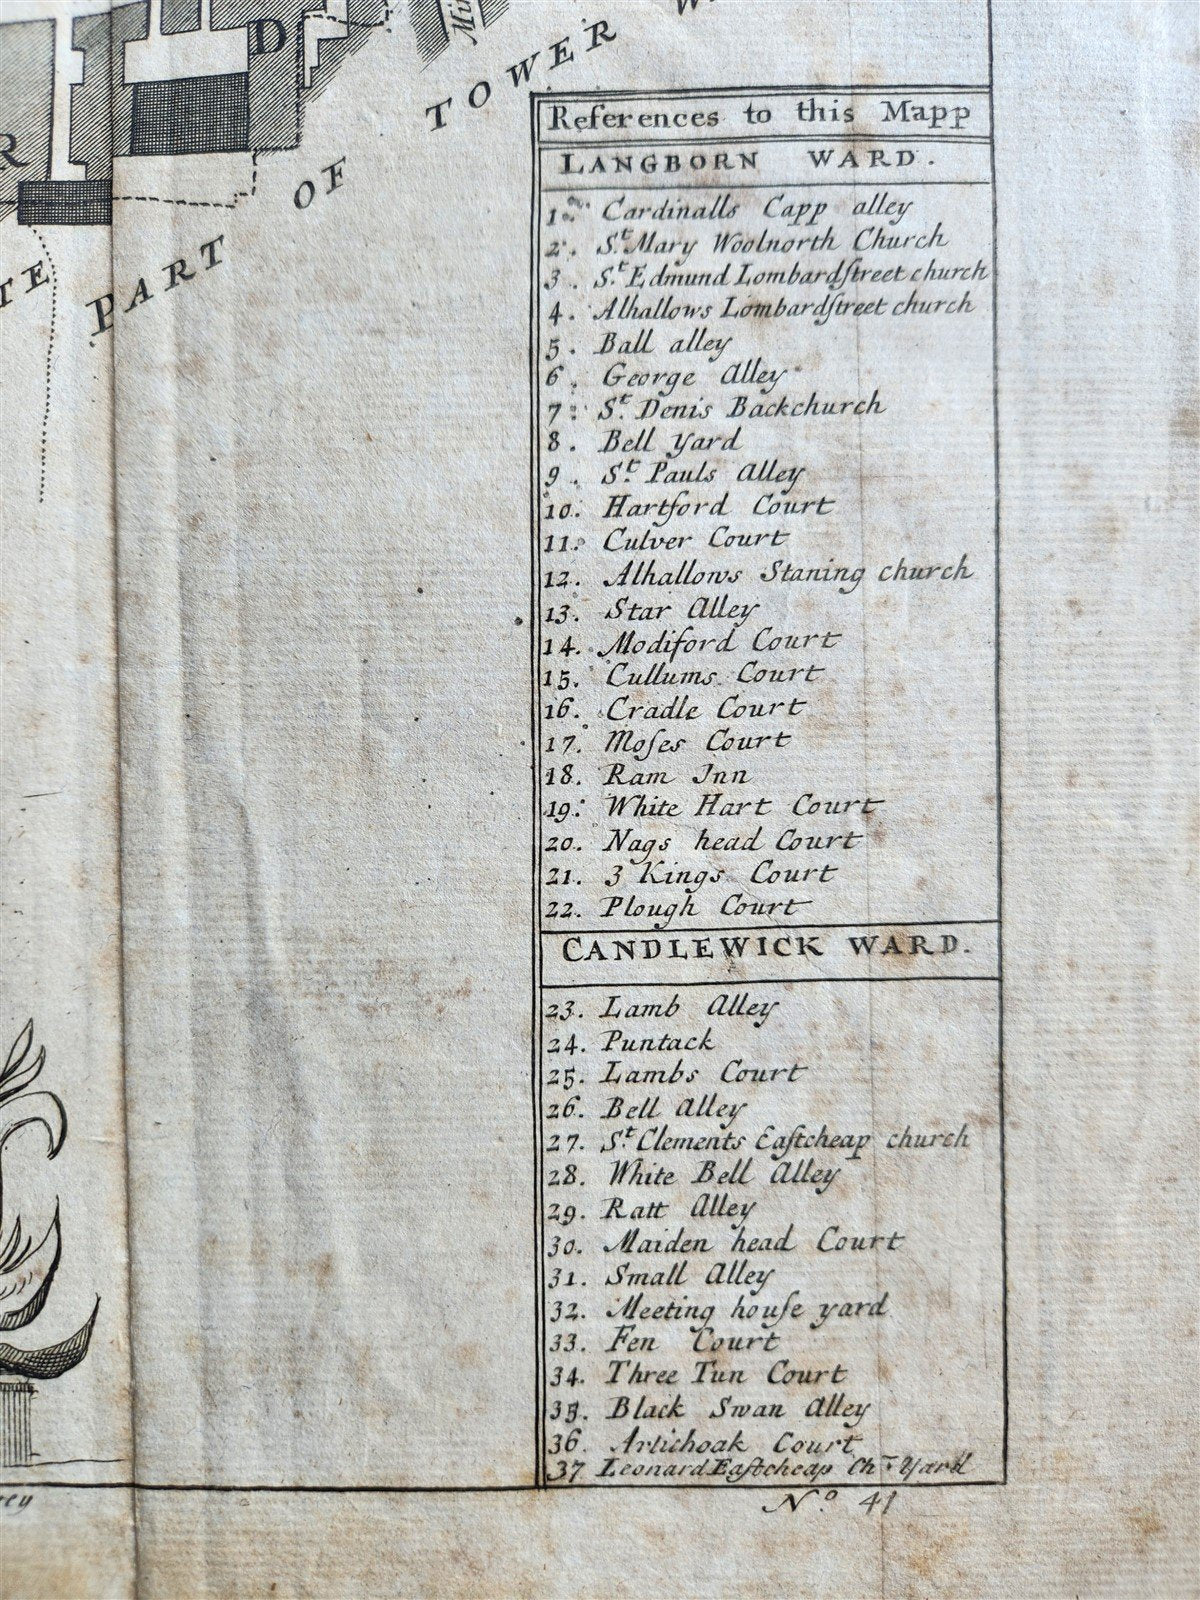 D
TOWER W
PART OF
R
TE
References to this Mapp
LANGBORN WARD.
1. Cardinalls Capp alley
2. St. Mary Woolnorth Church
3. St. Edmund Lombardſtreet church
4. Alhallows Lombardſtreet church
5. Ball alley
6. George Alley
7. St. Denis Backchurch
8. Bell Yard
9. St. Pauls Alley
10. Hartford Court
11. Culver Court
12. Alhallows Staning church
13. Star Alley
14. Modiford Court
15. Cullums Court
16. Cradle Court
17. Moſes Court
18. Ram Inn
19. White Hart Court
20. Nags head Court
21. 3 Kings Court
22. Plough Court
CANDLEWICK WARD.
23. Lamb Alley
24. Puntack
25. Lambs Court
26. Bell Alley
27. St. Clements Eaſtcheap church
28. White Bell Alley
29. Ratt Alley
30. Maiden head Court
31. Small Alley
32. Meeting houſe yard
33. Fen Court
34. Three Tun Court
35. Black Swan Alley
36. Artichoak Court
37 Leonard Eaſtcheap Ch. Yard
No. 41